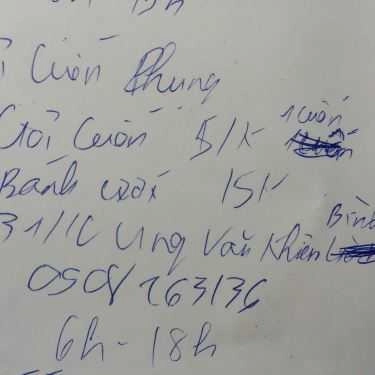 Cuốn Phụng
Gỏi Cuốn 5/K 1 cuốn
Bánh cuốn 15K
Ung Văn Khiêm Bình
0908 263136
6h - 18h